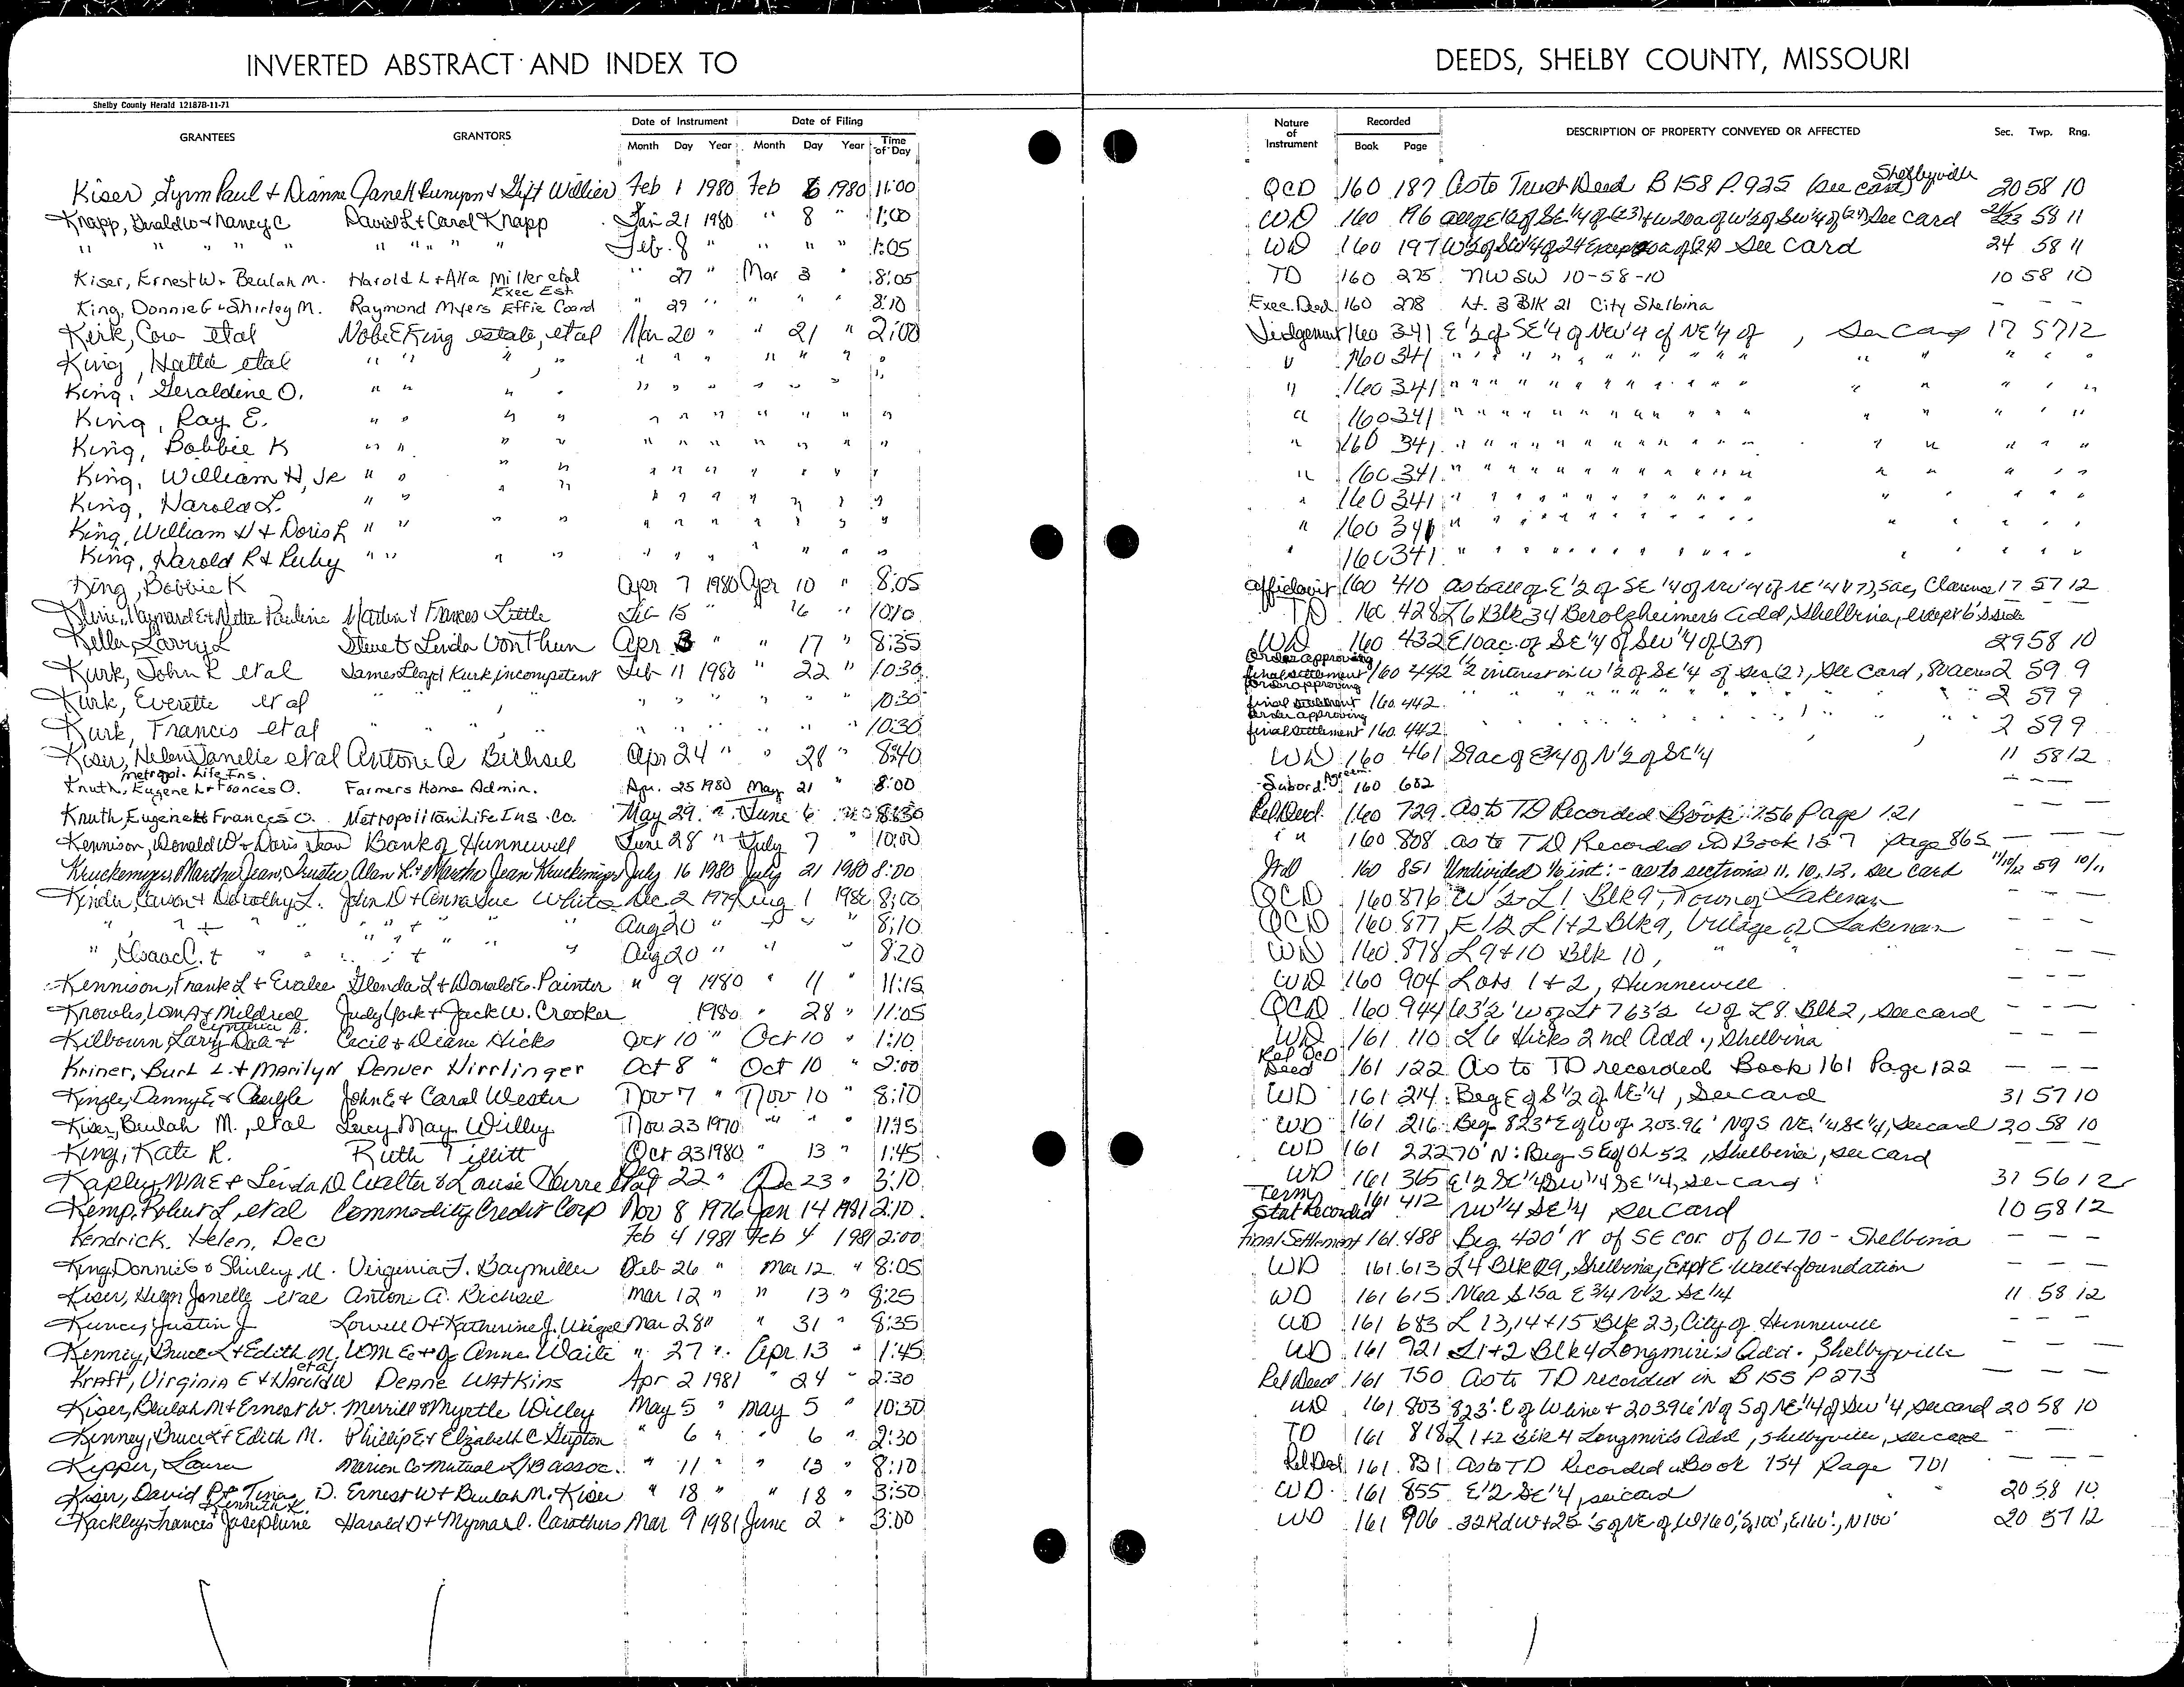 INVERTED ABSTRACT AND INDEX TO DEEDS, SHELBY COUNTY, MISSOURI
Shelby County Herald 12187B-11-71
GRANTEES GRANTORS Date of Instrument Date of Filing Time of Day Nature of Instrument Recorded DESCRIPTION OF PROPERTY CONVEYED OR AFFECTED Sec. Twp. Rng.
Month Day Year Month Day Year Book Page
Kiser, Lynn Paul + Dianne Janett Runyon + Gift Willier Feb 1 1980 Feb 6 1980 11:00 QCD 160 187 As to Trust Deed B 158 P. 925 (see card) Shelbyville 20 58 10
Knapp, Gerald W + Nancy C David L + Carol Knapp Jan 21 1980 " 8 " 1:00 WD 160 196 See Card 58 11
" " " " " " " " " Feb. 8 " " " " 1:05 WD 160 197 W½ of SW¼ of 24 See Card 24 58 11
Kiser, Ernest W + Beulah M. Harold L + Alta Miller etal " 27 " Mar 3 " 8:05 TD 160 275 NW SW 10-58-10 10 58 10
King, Donnie G + Shirley M. Raymond Myers Exec Est Effie Coard " 29 " " " " 8:10 Exec. Deed 160 278 Lt. 3 Blk 21 City Shelbina — — —
Kirk, Cora etal Nobel King estate, etal Mar 20 " " 21 " 2:00 Judgement 160 341 E½ of SE¼ of NW¼ of NE¼ of , See Card 17 57 12
King, Hattie etal " " " " " " " " " " " 160 341 " " " " " "
King, Geraldine O. " " " " " " " " " " " 160 341 " " " " " "
King, Ray E. " " " " " " " " " " " 160 341 " " " " " "
King, Bobbie K " " " " " " " " " " " 160 341 " " " " " "
King, William H, Jr " " " " " " " " " " " 160 341 " " " " " "
King, Harold L. " " " " " " " " " " " 160 341 " " " " " "
King, William H + Doris L " " " " " " " " " " " 160 341 " " " " " "
King, Harold R + Ruby " " " " " " " " " " " 160 341 " " " " " "
King, Bobbie K Apr 7 1980 Apr 10 " 8:05 Affidavit 160 410 as to all of E½ of SE¼ of NW¼ of NE¼ (17), Clarence 17 57 12
Kline, Maynard E + Netta Pauline Martin + Frances Little Feb 15 " " 16 " 10:10 TD 160 428 L6 Blk 34 Berolzheimers Add, Shelbina, except 6' S side — —
Keller, Larry L Steve + Linda VonThun Apr 3 " " 17 " 8:35 WD 160 432 E10ac. of SE¼ of SW¼ of (29) 29 58 10
Kurk, John R etal James Lloyd Kurk, incompetent Feb 11 1980 " 22 " 10:30 Order approving final settlement 160 442 ½ interest in W½ of SE¼ of Sec (2), See Card, 80 acres 2 59 9
Kurk, Everette etal " " " " " " " " 10:30 Order approving final settlement 160 442 " " " " 2 59 9
Kurk, Francis etal " " " " " " " " 10:30 Order approving final settlement 160 442 " " " " 2 59 9
Kiser, Helen Janelle etal Antone A Bichsel Apr 24 " " 28 " 8:40 WD 160 461 S9ac of E¾ of N½ of SE¼ 11 58 12
Knuth, Eugene L + Frances O. Metropl. Life Ins. Farmers Home Admin. Apr. 25 1980 May 21 " 8:00 Subord. Agreem. 160 682 — — —
Knuth, Eugene + Frances O. Metropolitan Life Ins. Co. May 29 " June 6 8:30 Rel Deed 160 729 As to TD Recorded Book 156 Page 121 — — —
Kennison, Donald W + Doris Jean Bank of Hunnewell June 28 " July 7 " 10:00 " " 160 808 as to TD Recorded in Book 157 page 865 — — —
Kruckemeyer, Martha Jean, Trustee Alan L. + Martha Jean Kruckemeyer July 16 1980 July 21 1980 8:00 WD 160 851 Undivided ½ int: - as to sections 11, 10, 12, see card 11/10/12 59 10/11
Kinder, Carson + Dorothy L. John D + Conna Sue White Dec 2 1979 Aug 1 1980 8:00 QCD 160 876 W½ L1 Blk 9, Town of Lakenan — — —
" " + " " " " + " " Aug 20 " " " 8:10 QCD 160 877 E 1/2 L 1+2 Blk 9, Village of Lakenan — — —
" , Isaac C. + " " " " + " Aug 20 " " " 8:20 WD 160 878 L 9+10 Blk 10, " " — — —
Kennison, Frank L + Evalee Glenda L + Donald E. Painter " 9 1980 " 11 " 11:15 WD 160 904 Lots 1+2, Hunnewell — — —
Knowles, Wm A + Mildred Judy York + Jack W. Crooker 1980 " 28 " 11:05 QCD 160 944 W 63½' W of Lt 7 63½ W of L8. Blk 2, see card — — —
Kilbourn, Lary Dale + Cynthia A. Cecil + Diane Hicks Oct 10 " Oct 10 " 1:10 WD 161 110 L6 Hicks 2nd Add., Shelbina — — —
Kriner, Burt L. + Marilyn Denver Hirrlinger Oct 8 " Oct 10 " 2:00 Rel Deed 161 122 As to TD recorded Book 161 Page 122 — — —
Kingle, Danny E. + John E + Carol Wester Nov 7 " Nov 10 " 8:10 WD 161 214 Beg E of S 1/2 of NE¼, see card 31 57 10
Kiser, Beulah M., etal Lucy May Willey Nov 23 1970 " " " 11:15 WD 161 216 Beg 823' E of W of 203.96' N of S NE¼ SE¼, see card 20 58 10
King, Kate R. Ruth Tillitt Oct 23 1980 " 13 " 1:45 WD 161 222 70' N: Beg SE of OL 52, Shelbina, see card — — —
Kapley, Wm E + Linda D. Walter + Louise Dec 22 " Dec 23 " 3:10 WD 161 365 E½ SE¼ SW¼ SE¼, see card 31 56 12
Kemp, Robert L, etal Commodity Credit Corp Nov 8 1976 Jan 14 1981 2:10 Term Stat Recorded 161 412 NW¼ SE¼ see card 10 58 12
Kendrick, Helen, Dec Feb 4 1981 Feb 4 1981 2:00 Final Settlement 161 488 Beg 420' N of SE cor. of OL 70 - Shelbina — — —
King, Donnie G + Shirley M. Virginia F. Baymiller Feb 26 " Mar 12 " 8:05 WD 161 613 L4 Blk 29, Shelbina, Expt E. Wall + foundation — — —
Kiser, Helen Janelle etal Antone A. Bichsel Mar 12 " " 13 " 8:25 WD 161 615 N6a S 15a E 3/4 N½ SE¼ 11 58 12
Kuncy, Justin J Lowell D + Katherine J. Weigel Mar 28 " " 31 " 8:35 WD 161 683 L 13, 14 + 15 Blk 23, City of Hunnewell — — —
Kenney, Bruce L + Edith M. Wm E. + Anne Waite " 27 " Apr 13 " 1:45 WD 161 721 L1+2 Blk 4 Longmires Add. Shelbyville — — —
Kraft, Virginia E + Harold W etal Deane Watkins Apr 2 1981 " 24 " 2:30 Rel Deed 161 750 As to TD recorded in B 155 P 273 — — —
Kiser, Beulah M + Ernest W. Merrill + Myrtle Willey May 5 " May 5 " 10:30 WD 161 803 823' E of W line + 203.96' N of S of NE¼ of SW¼, see card 20 58 10
Kenney, Bruce L + Edith M. Phillip E + Elizabeth C Gupton " 6 " " 6 " 2:30 TD 161 818 L 1+2 Blk 4 Longmires Add, Shelbyville, see card — — —
Kipper, Laura Marion Co Mutual assoc. " 11 " " 13 " 8:10 Rel Deed 161 831 As to TD Recorded in Book 154 Page 701 — — —
Kiser, David P + Tina D. Ernest W + Beulah M. Kiser " 18 " " 18 " 3:50 WD 161 855 E½ SE¼, see card 20 58 10
Kackley, Frances Josephine Kenneth K. Harold D + Myrna L. Carothers Mar 9 1981 June 2 " 3:00 WD 161 906 32 Rd W + 25' S of NE of W160', S100', E160', N100' 20 57 12